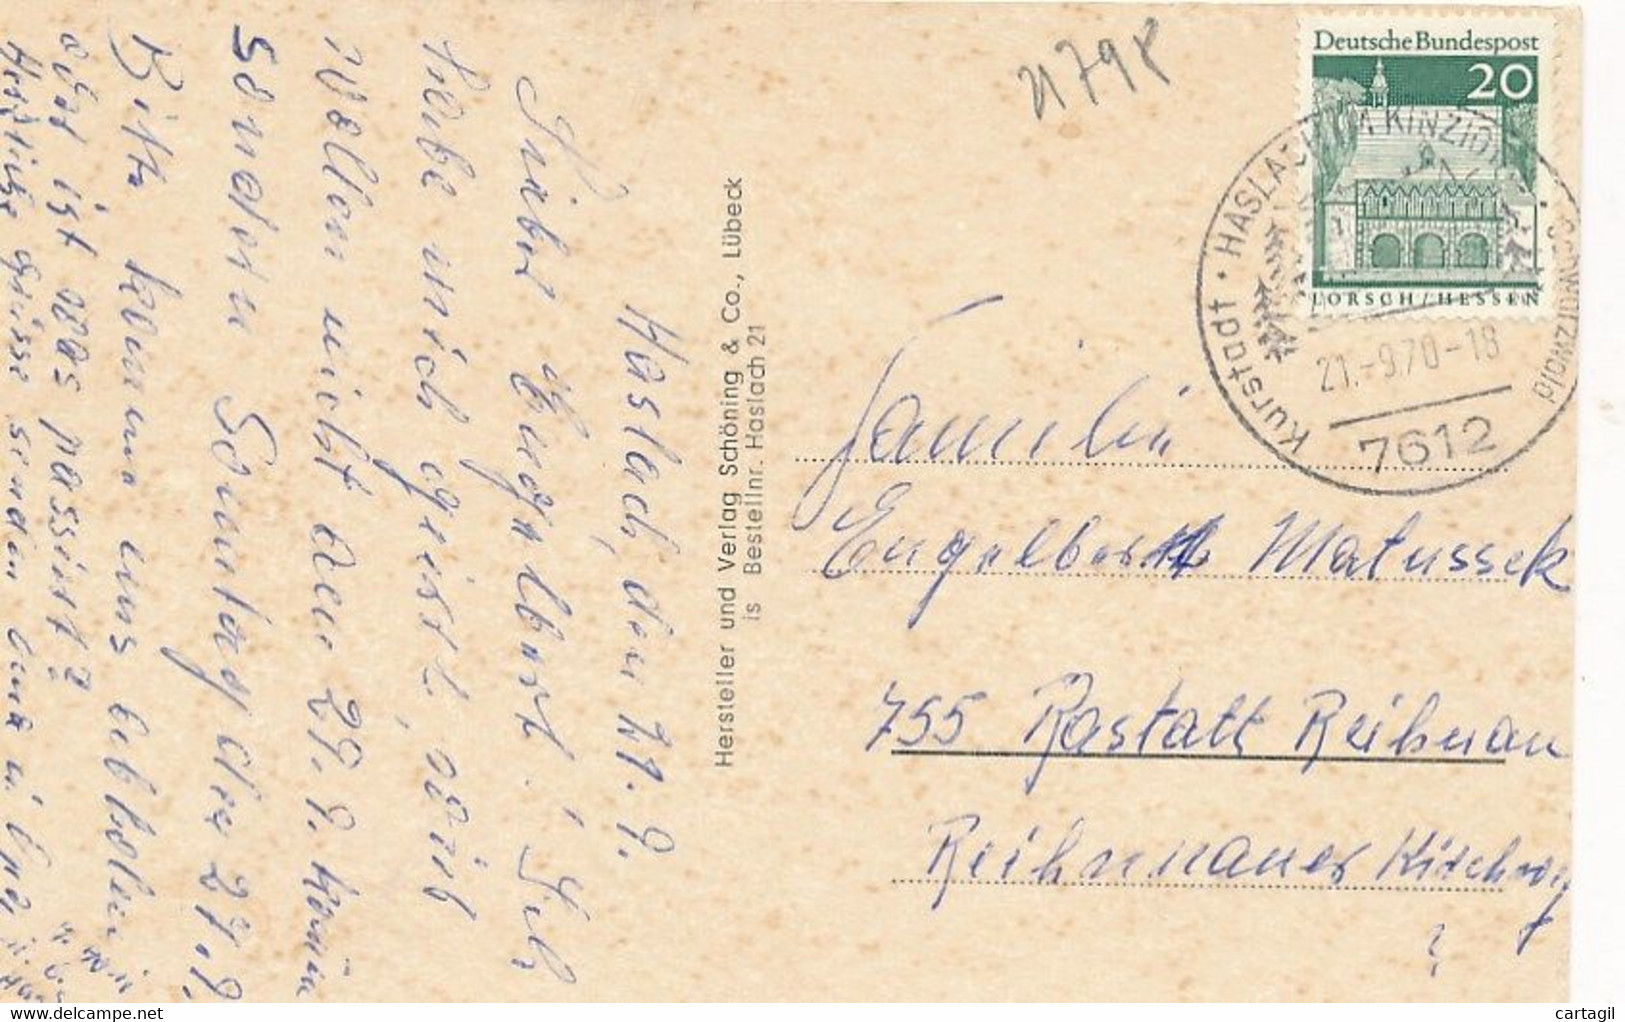 Haslach, den 21. 9.
Lieber Engelbert! Ich
habe mich geirrt, wir
wollen nicht den 29. 9. kommen
sondern Sonntag den 27. 9.
Bitte komme uns abholen
oder ist was passiert?
Herzliche Grüsse senden
Hersteller und Verlag Schöning & Co., Lübeck
is Bestellnr. Haslach 21
Deutsche Bundespost
20
LORSCH/HESSEN
Kurstadt · HASLACH IM KINZIGTAL · Schwarzwald
21.-9.70-18
7612
Familie
Engelbert Matussek
755 Rastatt Reihnau
Reihnauer Kirchweg
?
cartagil